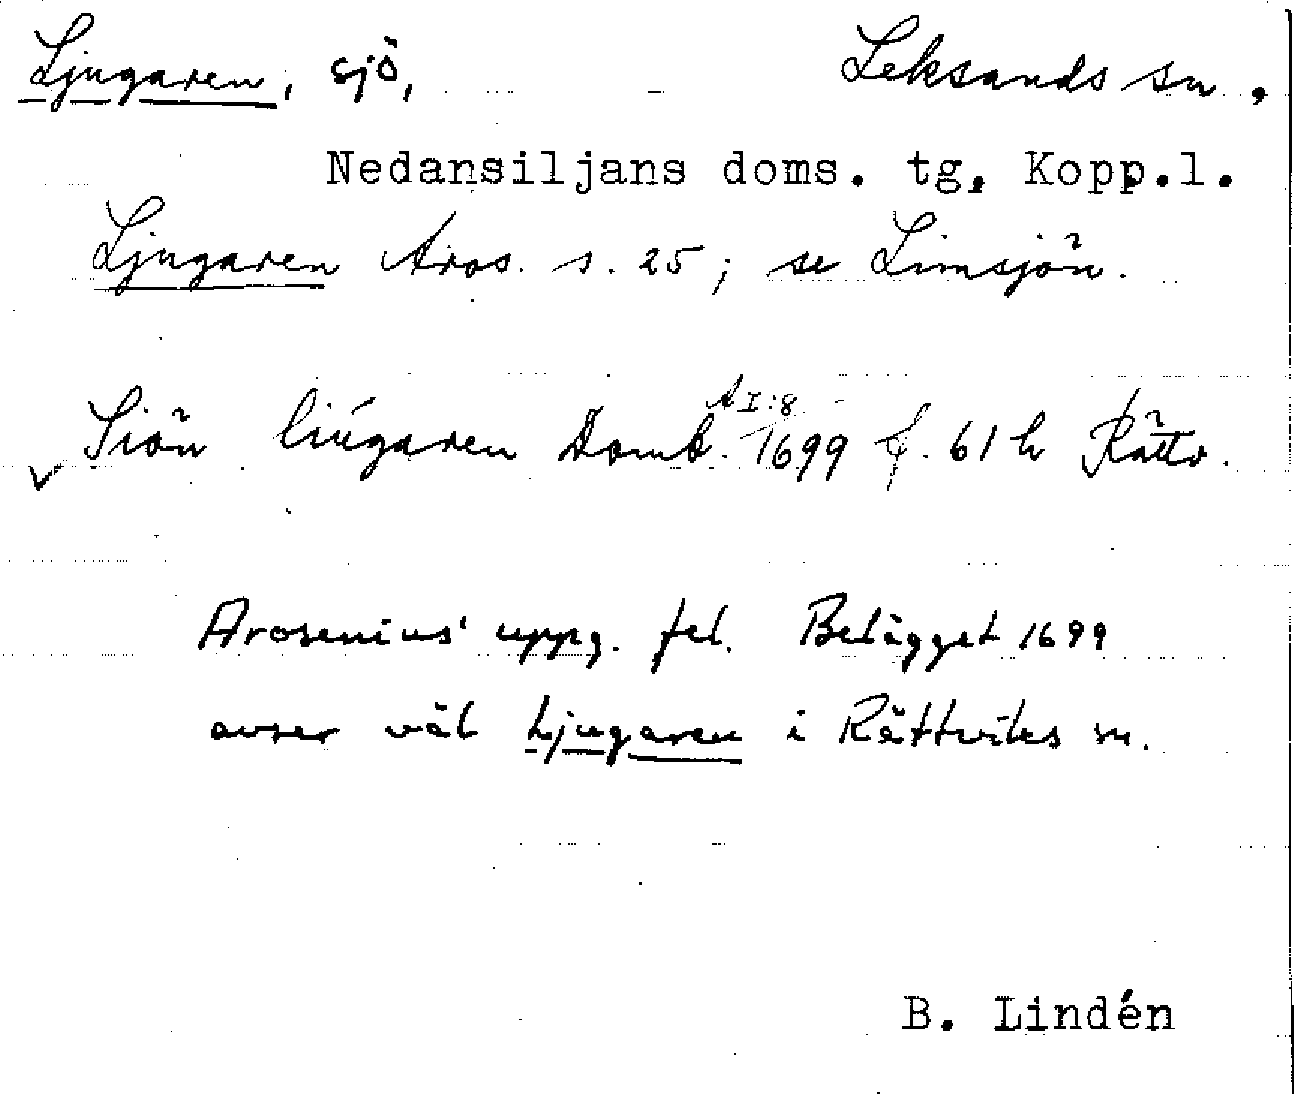 Ljugaren, sjö, Leksands sn,
Nedansiljans doms. tg, Kopp.l.
Ljugaren Aros. s. 25; se Limsjön.
A I:8
Siön liúgaren Domb. 1699 f. 61 h Rättv.
Arosenius' uppg. fel. Belägget 1699
avser väl Ljugaren i Rättviks sn.
B. Lindén